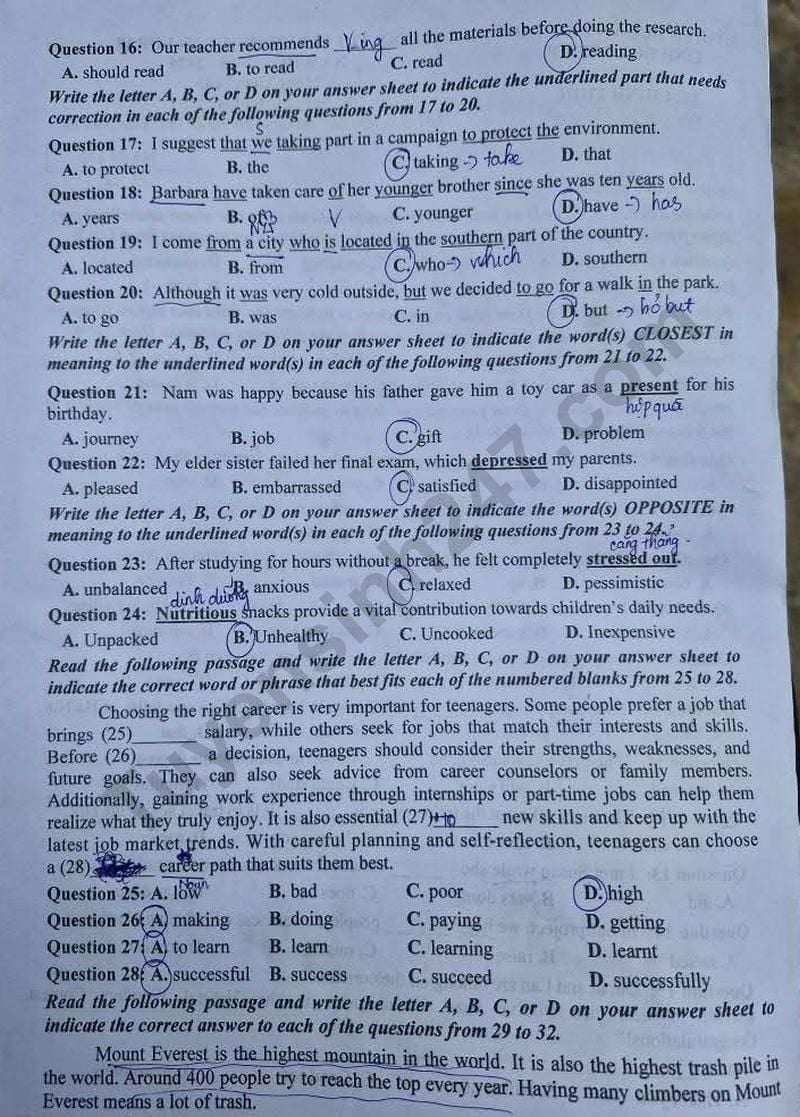 Question 16: Our teacher recommends V_ing all the materials before doing the research.
A. should read B. to read C. read D. reading
Write the letter A, B, C, or D on your answer sheet to indicate the underlined part that needs
correction in each of the following questions from 17 to 20.
S
Question 17: I suggest that we taking part in a campaign to protect the environment.
A. to protect B. the C. taking → take D. that
Question 18: Barbara have taken care of her younger brother since she was ten years old.
A. years B. of V C. younger D. have → has
Question 19: I come from a city who is located in the southern part of the country.
A. located B. from C. who → which D. southern
Question 20: Although it was very cold outside, but we decided to go for a walk in the park.
A. to go B. was C. in D. but → bỏ but
Write the letter A, B, C, or D on your answer sheet to indicate the word(s) CLOSEST in
meaning to the underlined word(s) in each of the following questions from 21 to 22.
Question 21: Nam was happy because his father gave him a toy car as a present for his
birthday. hộp quà
A. journey B. job C. gift D. problem
Question 22: My elder sister failed her final exam, which depressed my parents.
A. pleased B. embarrassed C. satisfied D. disappointed
Write the letter A, B, C, or D on your answer sheet to indicate the word(s) OPPOSITE in
meaning to the underlined word(s) in each of the following questions from 23 to 24.
căng thẳng
Question 23: After studying for hours without a break, he felt completely stressed out.
A. unbalanced B. anxious C. relaxed D. pessimistic
dinh dưỡng
Question 24: Nutritious snacks provide a vital contribution towards children's daily needs.
A. Unpacked B. Unhealthy C. Uncooked D. Inexpensive
Read the following passage and write the letter A, B, C, or D on your answer sheet to
indicate the correct word or phrase that best fits each of the numbered blanks from 25 to 28.
Choosing the right career is very important for teenagers. Some people prefer a job that
brings (25)________ salary, while others seek for jobs that match their interests and skills.
Before (26)________ a decision, teenagers should consider their strengths, weaknesses, and
future goals. They can also seek advice from career counselors or family members.
Additionally, gaining work experience through internships or part-time jobs can help them
realize what they truly enjoy. It is also essential (27)________ new skills and keep up with the
latest job market trends. With careful planning and self-reflection, teenagers can choose
a (28)________ career path that suits them best.
Noun
Question 25: A. low B. bad C. poor D. high
Question 26: A. making B. doing C. paying D. getting
Question 27: A. to learn B. learn C. learning D. learnt
Question 28: A. successful B. success C. succeed D. successfully
Read the following passage and write the letter A, B, C, or D on your answer sheet to
indicate the correct answer to each of the questions from 29 to 32.
Mount Everest is the highest mountain in the world. It is also the highest trash pile in
the world. Around 400 people try to reach the top every year. Having many climbers on Mount
Everest means a lot of trash.